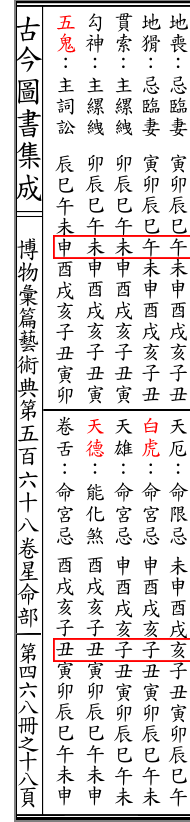 地喪：忌臨妻 寅卯辰巳午未申酉戌亥子丑
地猾：忌臨妻 寅卯辰巳午未申酉戌亥子丑
貫索：主縲絏 卯辰巳午未申酉戌亥子丑寅
勾神：主縲絏 卯辰巳午未申酉戌亥子丑寅
五鬼：主詞訟 辰巳午未申酉戌亥子丑寅卯
天厄：命限忌 未申酉戌亥子丑寅卯辰巳午
白虎：命宮忌 申酉戌亥子丑寅卯辰巳午未
天雄：命宮忌 申酉戌亥子丑寅卯辰巳午未
天德：能化煞 酉戌亥子丑寅卯辰巳午未申
卷舌：命宮忌 酉戌亥子丑寅卯辰巳午未申
古今圖書集成 博物彙篇藝術典第五百六十八卷星命部 第四六八冊之十八頁